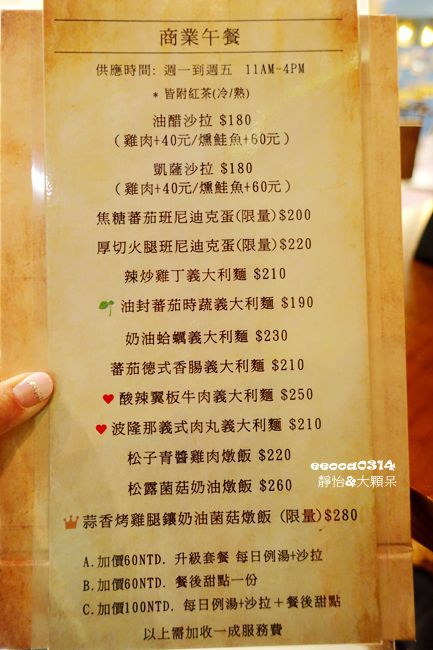 商業午餐
供應時間: 週一到週五 11AM~4PM
* 皆附紅茶(冷/熱)
油醋沙拉 $180
(雞肉+40元/燻鮭魚+60元)
凱薩沙拉 $180
(雞肉+40元/燻鮭魚+60元)
焦糖蕃茄班尼迪克蛋(限量)$200
厚切火腿班尼迪克蛋(限量)$220
辣炒雞丁義大利麵 $210
油封蕃茄時蔬義大利麵 $190
奶油蛤蠣義大利麵 $230
蕃茄德式香腸義大利麵 $210
酸辣翼板牛肉義大利麵 $250
波隆那義式肉丸義大利麵 $210
松子青醬雞肉燉飯 $220
松露菌菇奶油燉飯 $260
蒜香烤雞腿鑲奶油菌菇燉飯 (限量)$280
A.加價60NTD. 升級套餐 每日例湯+沙拉
B.加價60NTD. 餐後甜點一份
C.加價100NTD. 每日例湯+沙拉+餐後甜點
以上需加收一成服務費
靜怡&大顆呆